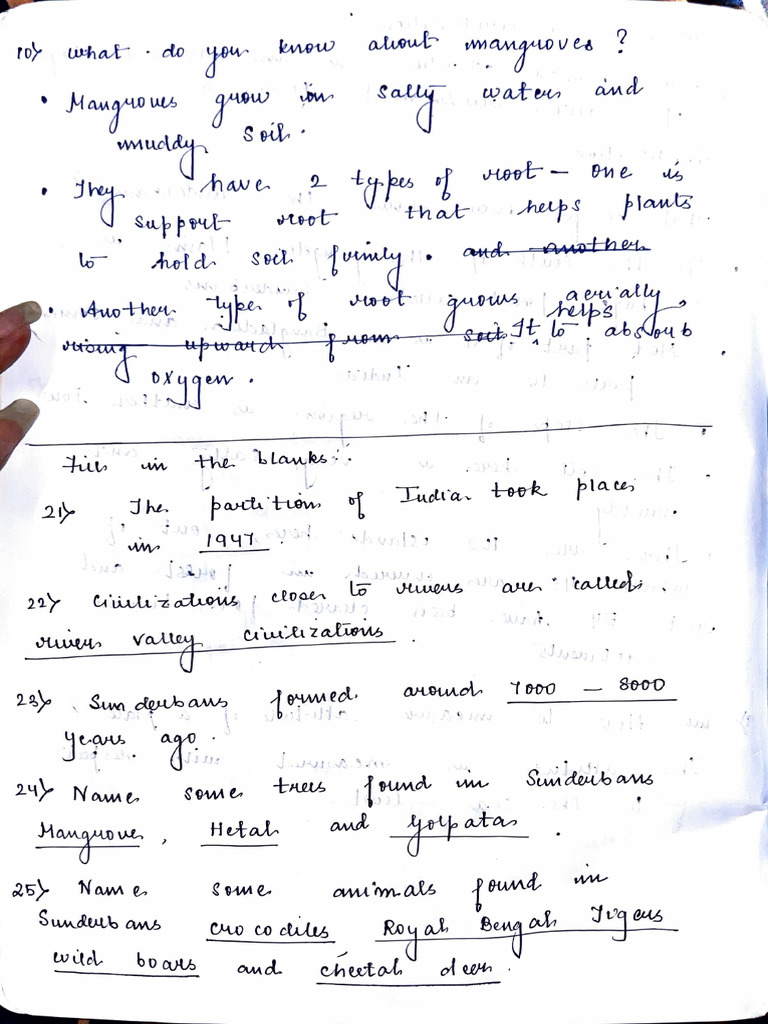 10) What do you know about mangroves ?
• Mangroves grow in salty waters and
muddy soil.
• They have 2 types of root – one is
support root that helps plants
to hold soil firmly . and another
• Another type of root grows aerially,
rising upward from soil. It helps to absorb
oxygen .
Fill in the blanks :
21) The partition of India took places
in 1947 .
22) Civilizations closer to rivers are called
rivers valley civilizations .
23) Sunderbans formed around 7000 – 8000
years ago .
24) Name some trees found in Sunderbans
Mangrove , Hetal and Golpata .
25) Name some animals found in
Sunderbans crocodiles Royal Bengal Tigers
wild boars and cheetal deer .